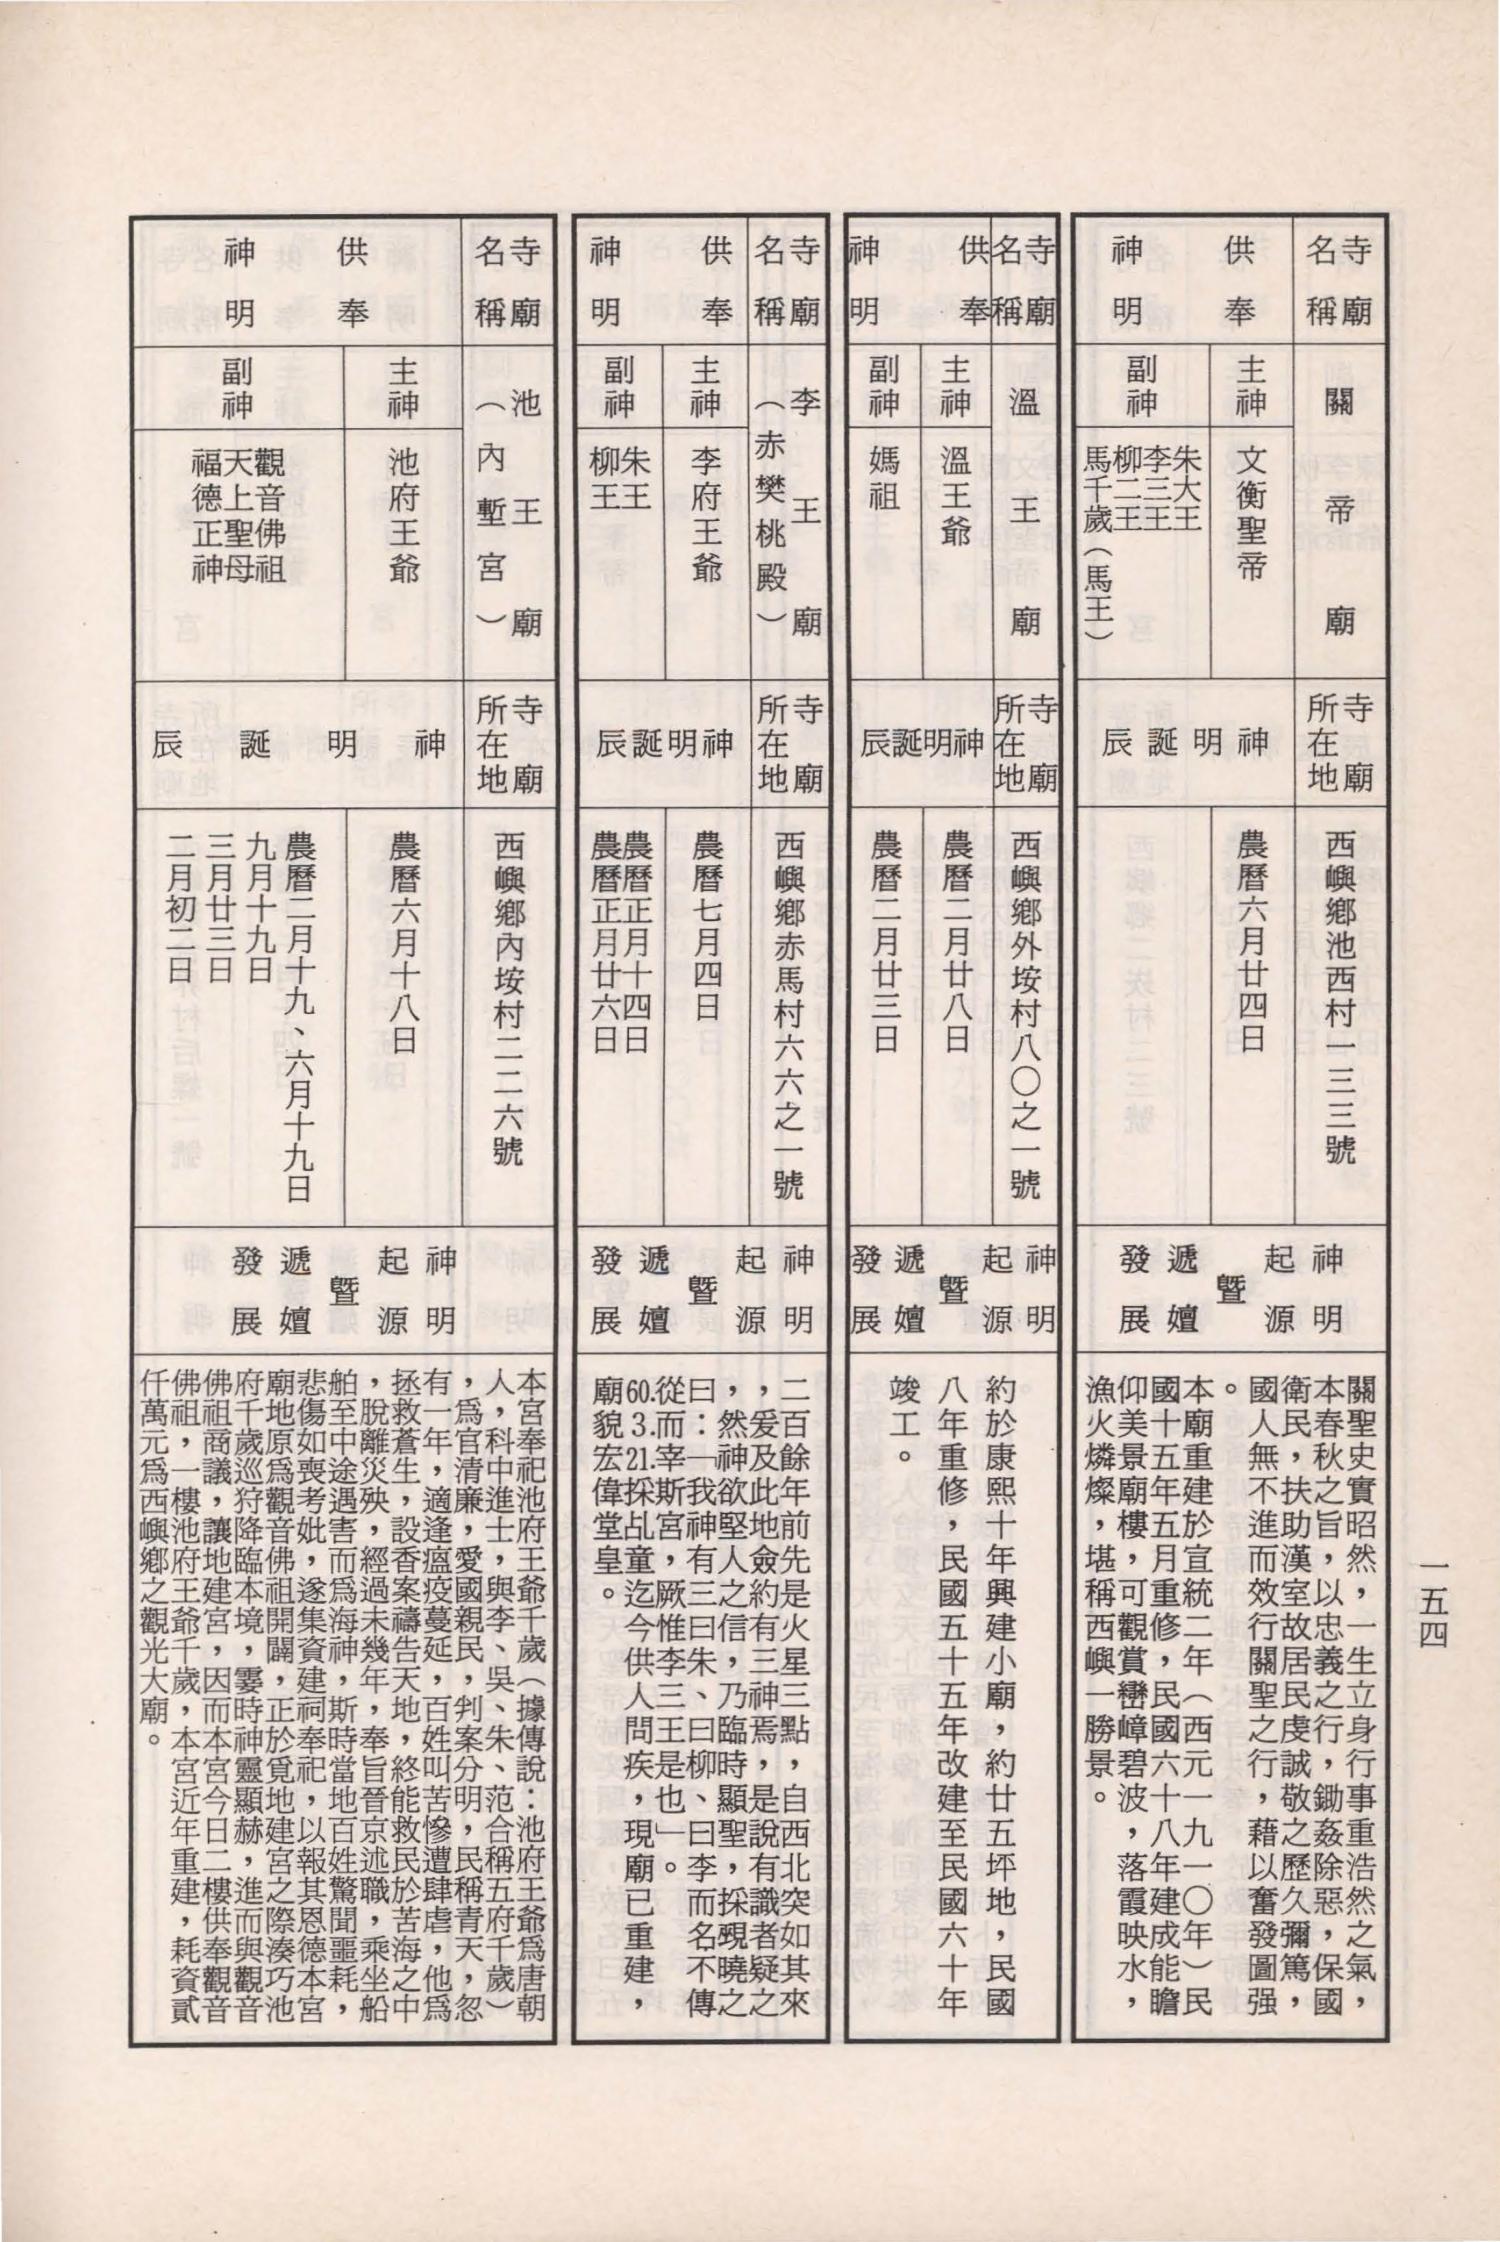 寺廟
名稱
關帝廟
寺廟
所在地
西嶼鄉池西村一三三號
供奉
神明
主神
文衡聖帝
副神
朱大王
李三王
柳二王
馬千歲（馬王）
神明誕辰
農曆六月廿四日
神明
起源
暨
遞嬗
發展
關聖史實昭然，一生立身行事重浩然之氣，
本春秋之旨，以忠義之行，鋤姦除惡，保國
衛民，扶助漢室故居民虔誠敬之歷久彌篤，
國人無不進而效行關聖之行，藉以奮發圖强
。
本廟重建於宣統二年（西元一九一〇年）民
國十五年五月重修，民國六十八年建成能瞻
仰美景廟樓，可觀賞巒嶂碧波，落霞映水，
漁火燐燦，堪稱西嶼一勝景。
寺廟
名稱
溫王廟
寺廟
所在地
西嶼鄉外垵村八〇之一號
供奉
神明
主神
溫王爺
副神
媽祖
神明誕辰
農曆二月廿八日
農曆二月廿三日
神明
起源
暨
遞嬗
發展
約於康熙十年興建小廟，約廿五坪地，民國
八年重修，民國五十五年改建至民國六十年
竣工。
寺廟
名稱
李王廟
（赤樊桃殿）
寺廟
所在地
西嶼鄉赤馬村六六之一號
供奉
神明
主神
李府王爺
副神
朱王
柳王
神明誕辰
農曆七月四日
農曆正月十四日
農曆正月廿六日
神明
起源
暨
遞嬗
發展
二百餘年前先是火星三點，自西北突如其來
，爰及此地僉約有三神焉，是說有識者疑之
，然神欲堅人之信，乃臨時顯聖，採覡曉之
曰：「我神有三曰朱、曰柳、曰李而名不傳
從而宰斯宮，厥惟李三王是也」。
60.3.21.採乩童迄今供人問疾，現廟已重建，
廟貌宏偉堂皇。
寺廟
名稱
池王廟
（內塹宮）
寺廟
所在地
西嶼鄉內垵村二二六號
供奉
神明
主神
池府王爺
副神
觀音佛祖
天上聖母
福德正神
神明誕辰
農曆六月十八日
農曆二月十九、六月十九日
九月十九日
三月廿三日
二月初二日
神明
起源
暨
遞嬗
發展
本宮奉祀池府王爺千歲（據傳說：池府王爺爲唐朝
人，科中進士，與李、吳、朱、范合稱五府千歲）
，爲官清廉，愛國親民，判案分明，民稱青天，忽
有一年，適逢瘟疫蔓延，百姓叫苦慘遭肆虐，他爲
拯救蒼生，設香案禱告天地，終能救民於苦海之中
，脫離災殃，經過未幾年，奉旨晉京述職，乘坐船
舶至中途遇害而爲海神，斯時當地百姓驚聞噩耗，
悲傷如喪考妣，遂集資建祠奉祀，以報其恩德本宮
廟地原爲觀音佛祖開闢，正於覓地建宮之際湊巧池
府千歲巡狩降臨本境，霎時神靈顯赫，進而與觀音
佛祖商議，讓地建宮，因而本宮今日二樓供奉觀音
佛祖，一樓池府王爺千歲，本宮近年重建，耗資貳
仟萬元爲西嶼鄉之觀光大廟。
一五四